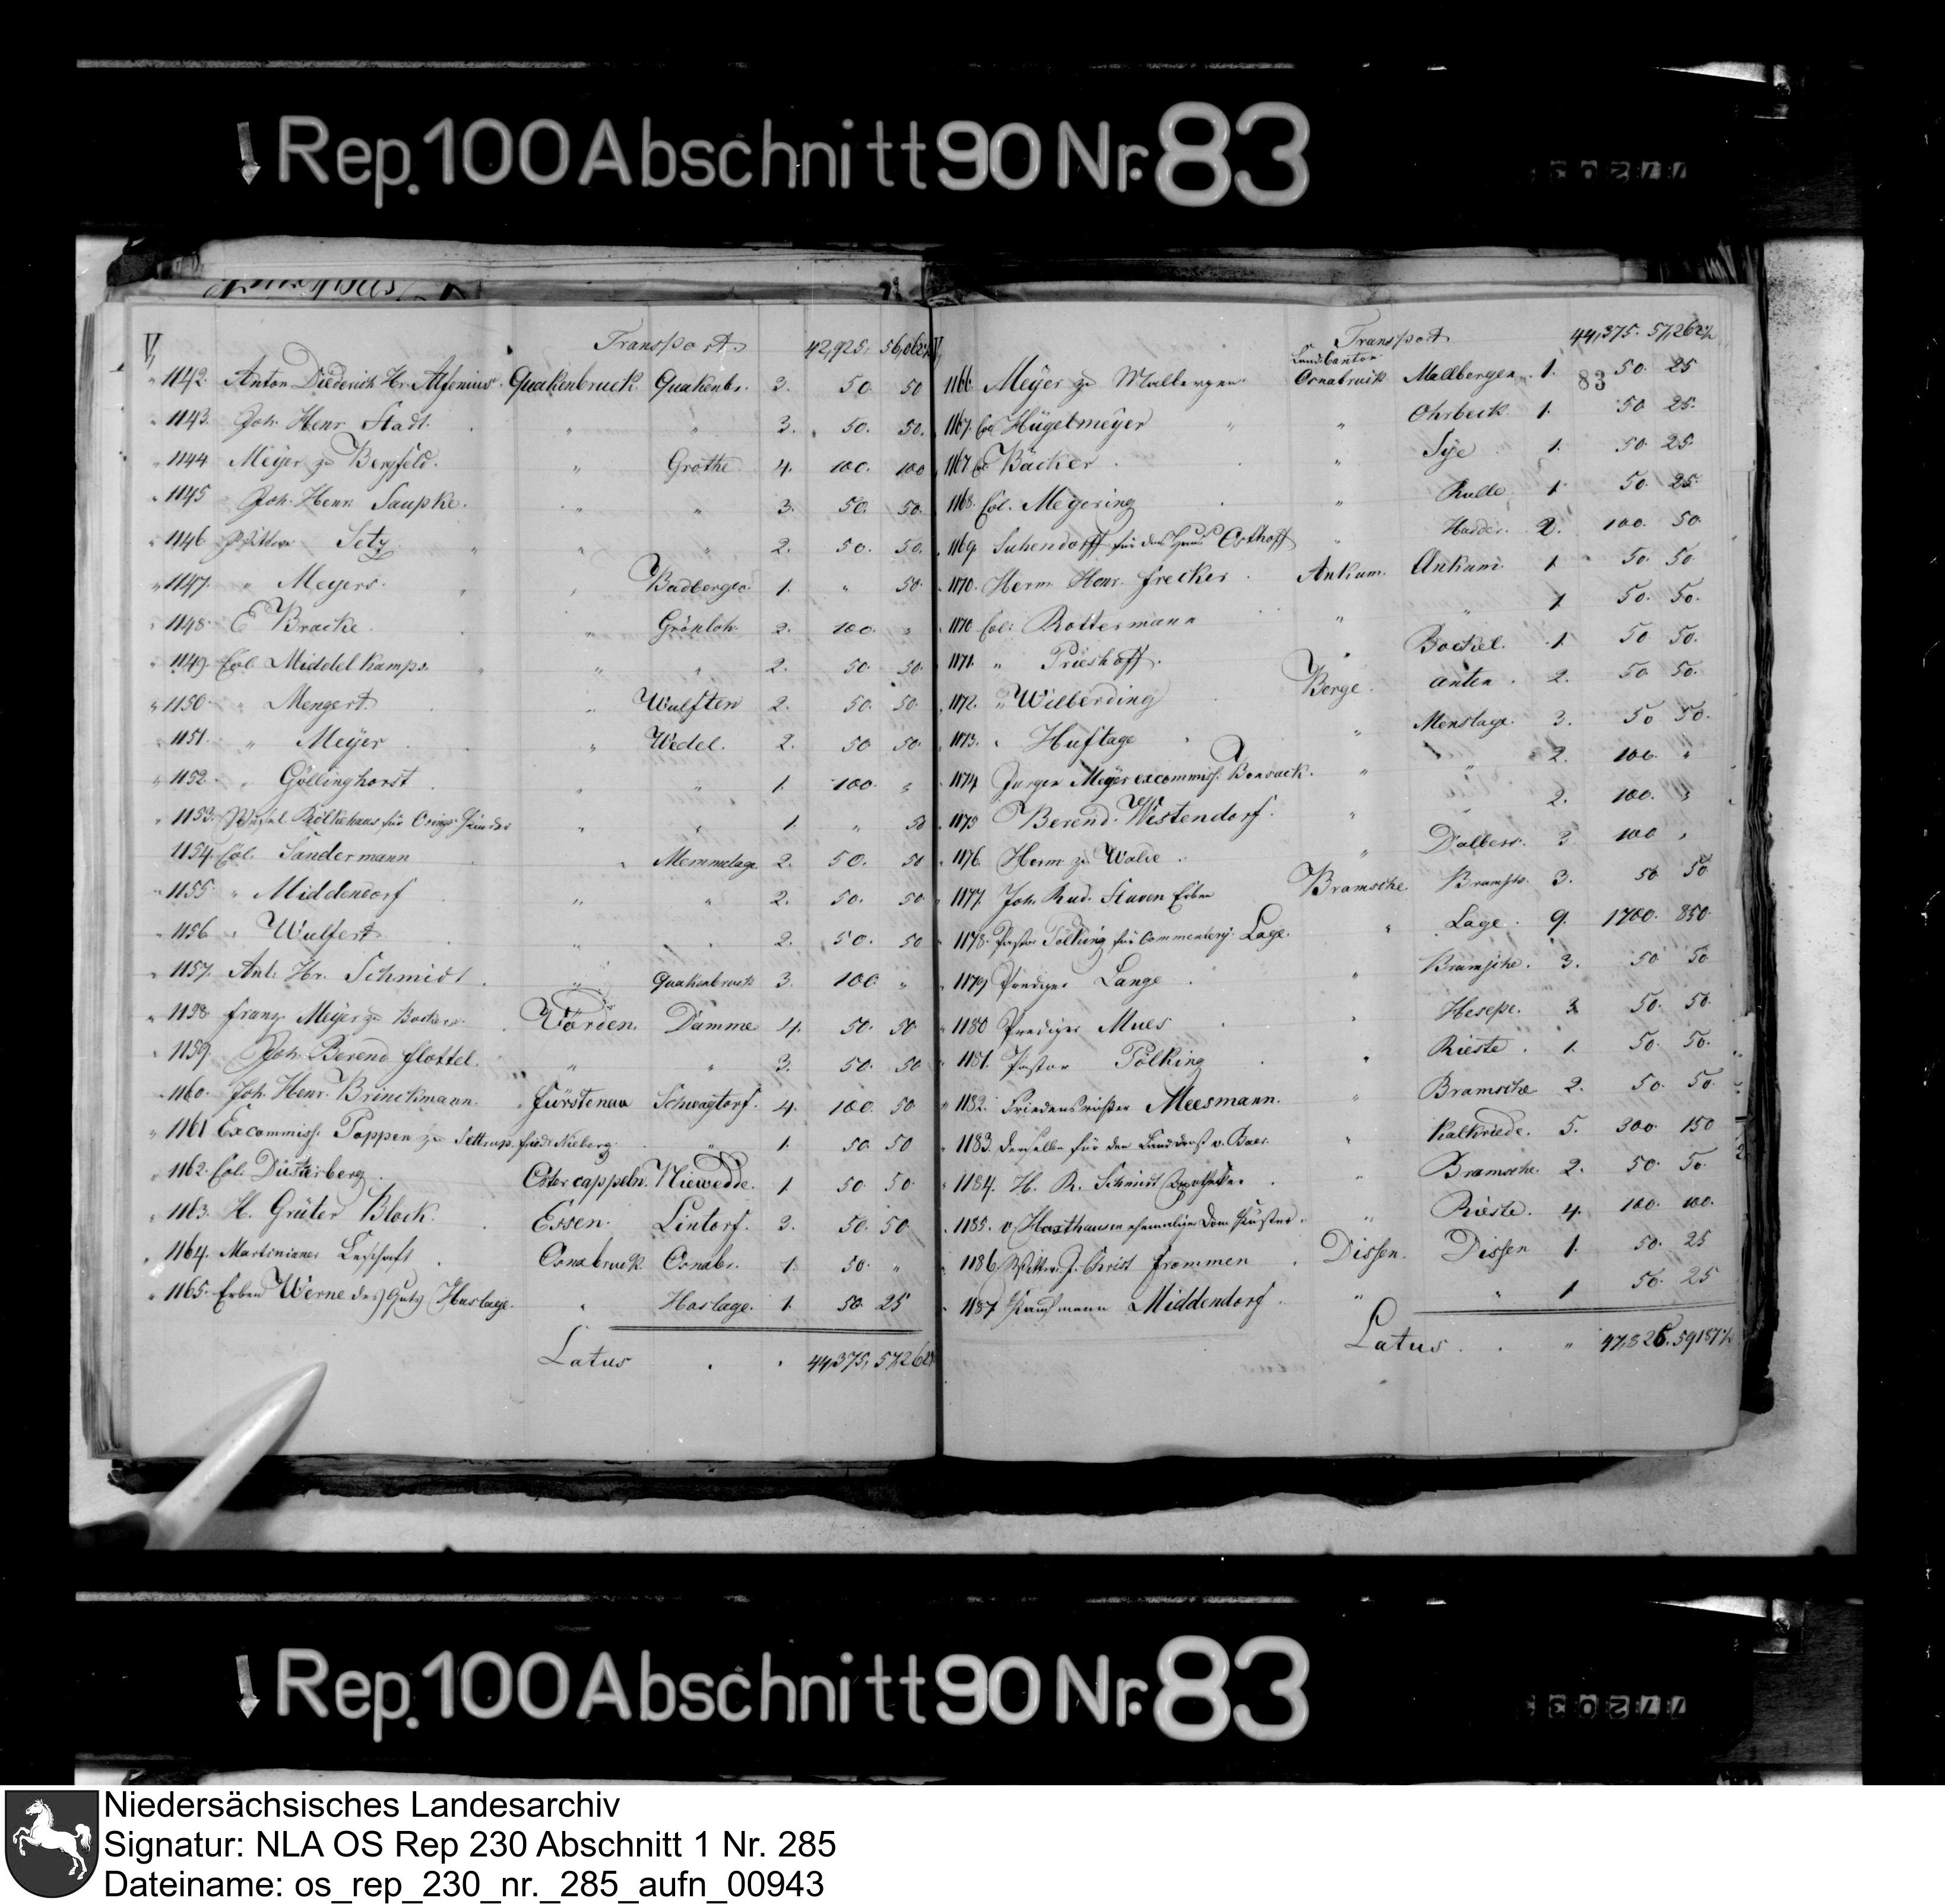 Rep. 100 Abschnitt 90 Nr. 83
V, Transport. 42,925, 56,062½
" 1142. Anton Diederich Hr. Alfonius. Quakenbruck. Quakenbr. 3. 50. 50
" 1143. Joh. Henr. Stadt. " " 3. 50. 50.
" 1144 Meÿer zu Bergfeld. " Grothe 4. 100. 100
" 1145 Joh. Henr. Saupke. " " 3. 50. 50.
" 1146 Wittwe Setz " " 2. 50. 50.
" 1147. " Meyers. " Badbergen 1. " 50.
" 1148. E Bracke. " Grönloh. 2. 100. "
" 1149. Col. Middelkamps. " " 2. 50. 50.
" 1150. " Mengert. " Wulften 2. 50. 50.
" 1151. " Meÿer " Wedel. 2. 50. 50.
" 1152. " Göllinghorst " " 1. 100. "
" 1153. für " " 1. " 50
" 1154. Col. Sandermann " Memmelage 2. 50. 50
" 1155. " Middendorf " " 2. 50. 50
" 1156 " Wulfert " " 2. 50. 50
" 1157. Ant. Hr. Schmidt. " Quakenbruck 3. 100. "
" 1158. Franz Meÿer zu Vörden. Damme 4. 50. 50
" 1159. Joh. Berend Flottel. " " 3. 50. 50
" 1160. Joh. Henr. Brinckmann. Fürstenau Schwagtorf. 4. 100. 50
" 1161 Excommiss. Poppen zu Settrup. " 1. 50. 50
" 1162. Col. Düsterberg Ostercappeln. Niewedde. 1. 50. 50
" 1163. H. Grüter Block. Essen. Lintorf. 3. 50. 50
" 1164. Martinianer Leischaft Osnabruck Osnabr. 1. 50. "
" 1165. Erben Werne des Guts Haslage. " Haslage. 1. 50. 25
Latus . . 44,375, 57,262½
V, Transport. 44,375. 57,262½
83
1166. Meÿer zu Malbergen Landcanton Osnabruck Mallbergen. 1. 50. 25
" 1167. Col Hügelmeÿer " " Ohrbeck 1. 50. 25.
" 1167 Col Bäcker " Sye 1. 50. 25
" 1168. Col. Meyering " Rulle. 1. 50. 25.
" 1169. Suhendorff für das Haus Osthoff " 2. 100. 50.
" 1170. Herm. Henr. Frecker Ankum. Ankum 1. 50. 50
" 1170 Col: Rottermann " " 1. 50. 50.
" 1171. " Prieshoff. " Bockel. 1. 50. 50.
" 1172. " Wilberding Berge. Anten. 2. 50. 50.
" 1173. " Huftage " Menslage. 3. 50. 50.
" 1174 Jurgen Meÿer excommiss. Bonsack. " " 2. 100. "
" 1175 Berend Westendorf. " " 2. 100. "
" 1176. Herm. zu Walde " 3. 100 "
" 1177. Joh. Rud. Staven Erben Bramsche Bramsche. 3. 50. 50
" 1178. Pastor Pölking für Commentery Lage. " Lage. 9. 1700. 850.
" 1179. Prediger Lange " Bramsche. 3. 50. 50
" 1180 Prediger Mues " Hesepe. 3. 50. 50.
" 1181. Pastor Pölking " Rieste. 1. 50. 50.
" 1182. Friedensrichter Meesmann. " Bramsche 2. 50. 50.
" 1183. derselbe für den Landdrost v. Baer. " Kalkriede. 5. 300. 150
" 1184. H. R. Schmidt Apotheker " Bramsche. 2. 50. 50.
" 1185. v. Haxthausen ehemaliger Dom Küster. " Rieste. 4. 100. 100.
" 1186. Wittwe J. Christ Frommen Dissen. Dissen 1. 50. 25
" 1187. Kaufmann Middendorf. " " 1. 50. 25
Latus . . " 47,825. 59187½
Rep. 100 Abschnitt 90 Nr. 83
Niedersächsisches Landesarchiv
Signatur: NLA OS Rep 230 Abschnitt 1 Nr. 285
Dateiname: os_rep_230_nr._285_aufn_00943